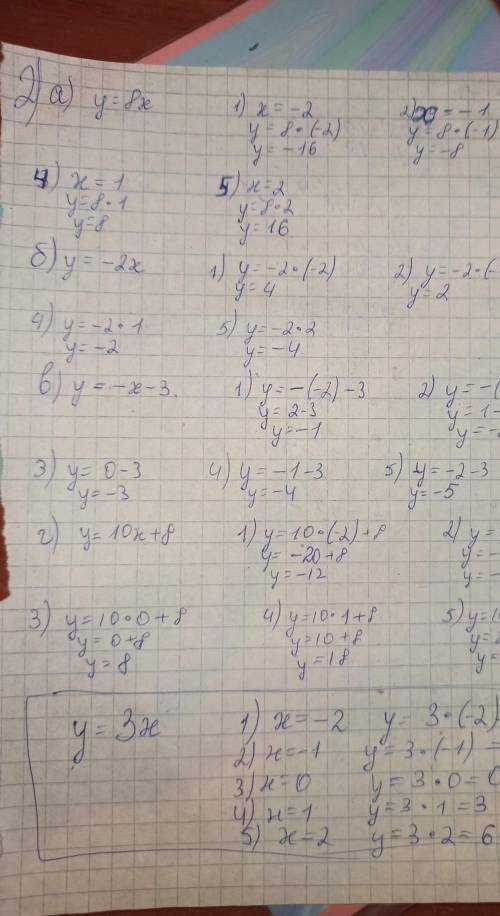 2) а) y=8x 1) x=-2 2) x=-1
y=8·(-2) y=8·(-1)
y=-16 y=-8
4) x=1 5) x=2
y=8·1 y=8·2
y=8 y=16
б) y=-2x 1) y=-2·(-2) 2) y=-2·(-
y=4 y=2
4) y=-2·1 5) y=-2·2
y=-2 y=-4
в) y=-x-3. 1) y=-(-2)-3 2) y=-(
y=2-3 y=1-
y=-1 y=-
3) y=0-3 4) y=-1-3 5) y=-2-3
y=-3 y=-4 y=-5
г) y=10x+8 1) y=10·(-2)+8 2) y=
y=-20+8 y=-
y=-12 y=-
3) y=10·0+8 4) y=10·1+8 5) y=1
y=0+8 y=10+8 y=
y=8 y=18 y=
y=3x 1) x=-2 y=3·(-2)
2) x=-1 y=3·(-1)=
3) x=0 y=3·0=0
4) x=1 y=3·1=3
5) x=2 y=3·2=6